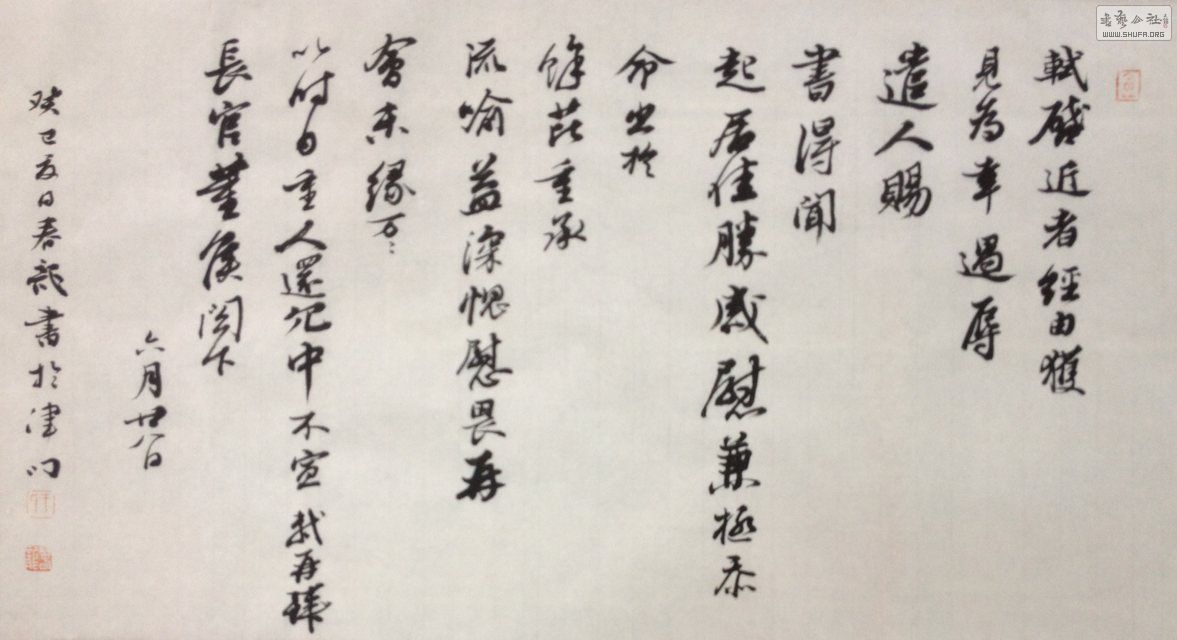 軾啟近者經由獲
見為幸過辱
遣人賜
書得聞
起居佳勝感慰兼極忝
命出於
餘芘重承
流喻益深愧慰畏再
會未緣万〻
以時自重人還冗中不宣軾再拜
長官董侯閣下
六月廿八日
癸巳夏日春龍書於津门
書藝公社
WWW.SHUFA.ORG